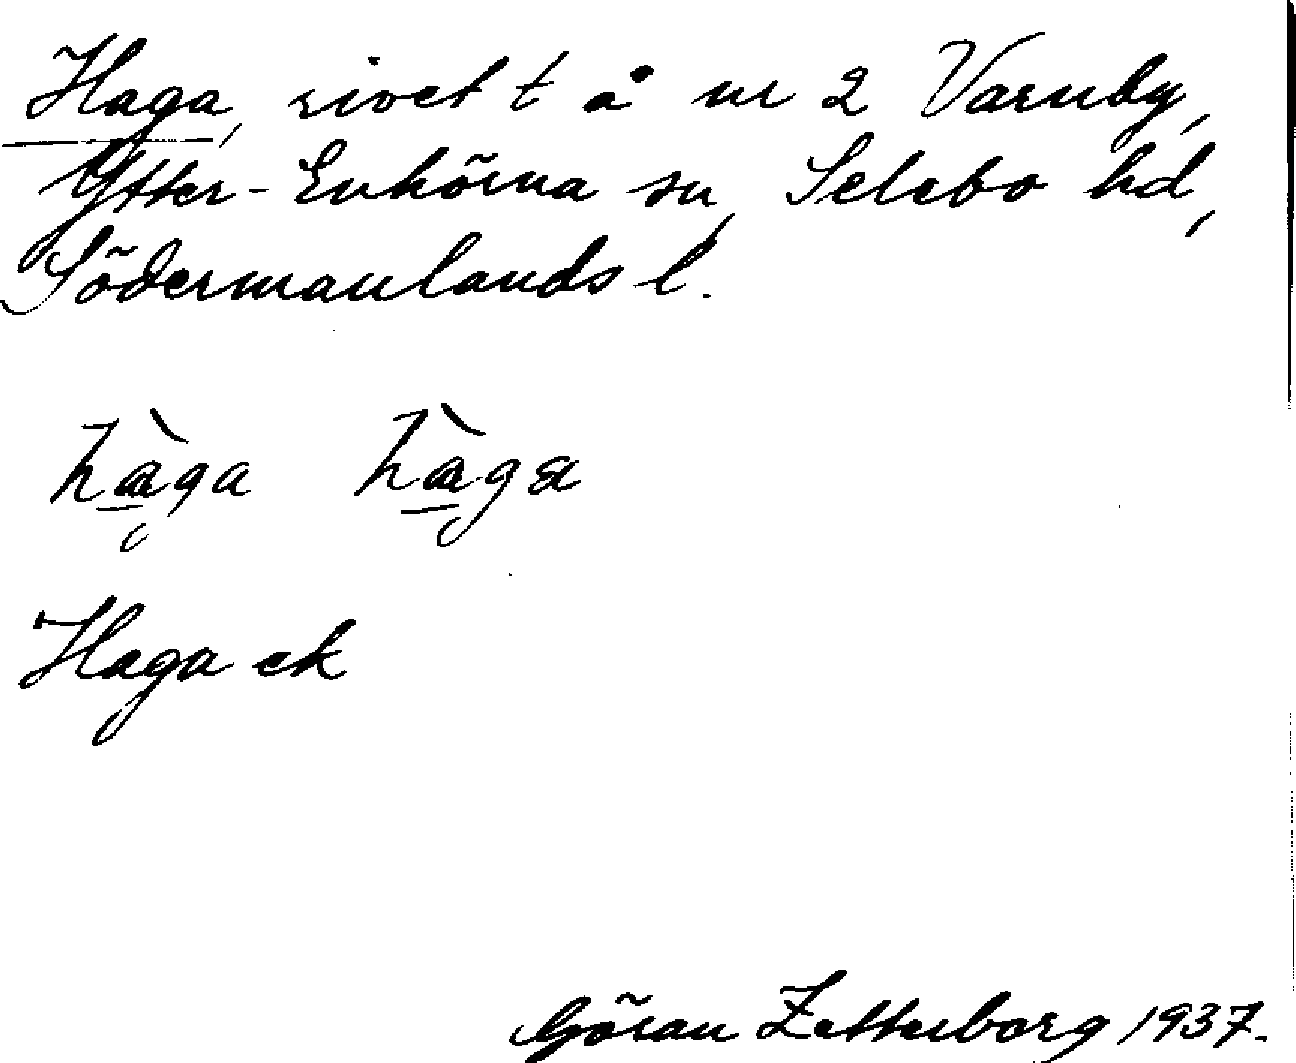 Haga, rivet t å nr 2 Varnby,
Ytter-Enhörna sn, Selebo hd,
Södermanlands l.
hàga hàga
Haga ek
Göran Zetterborg 1937.